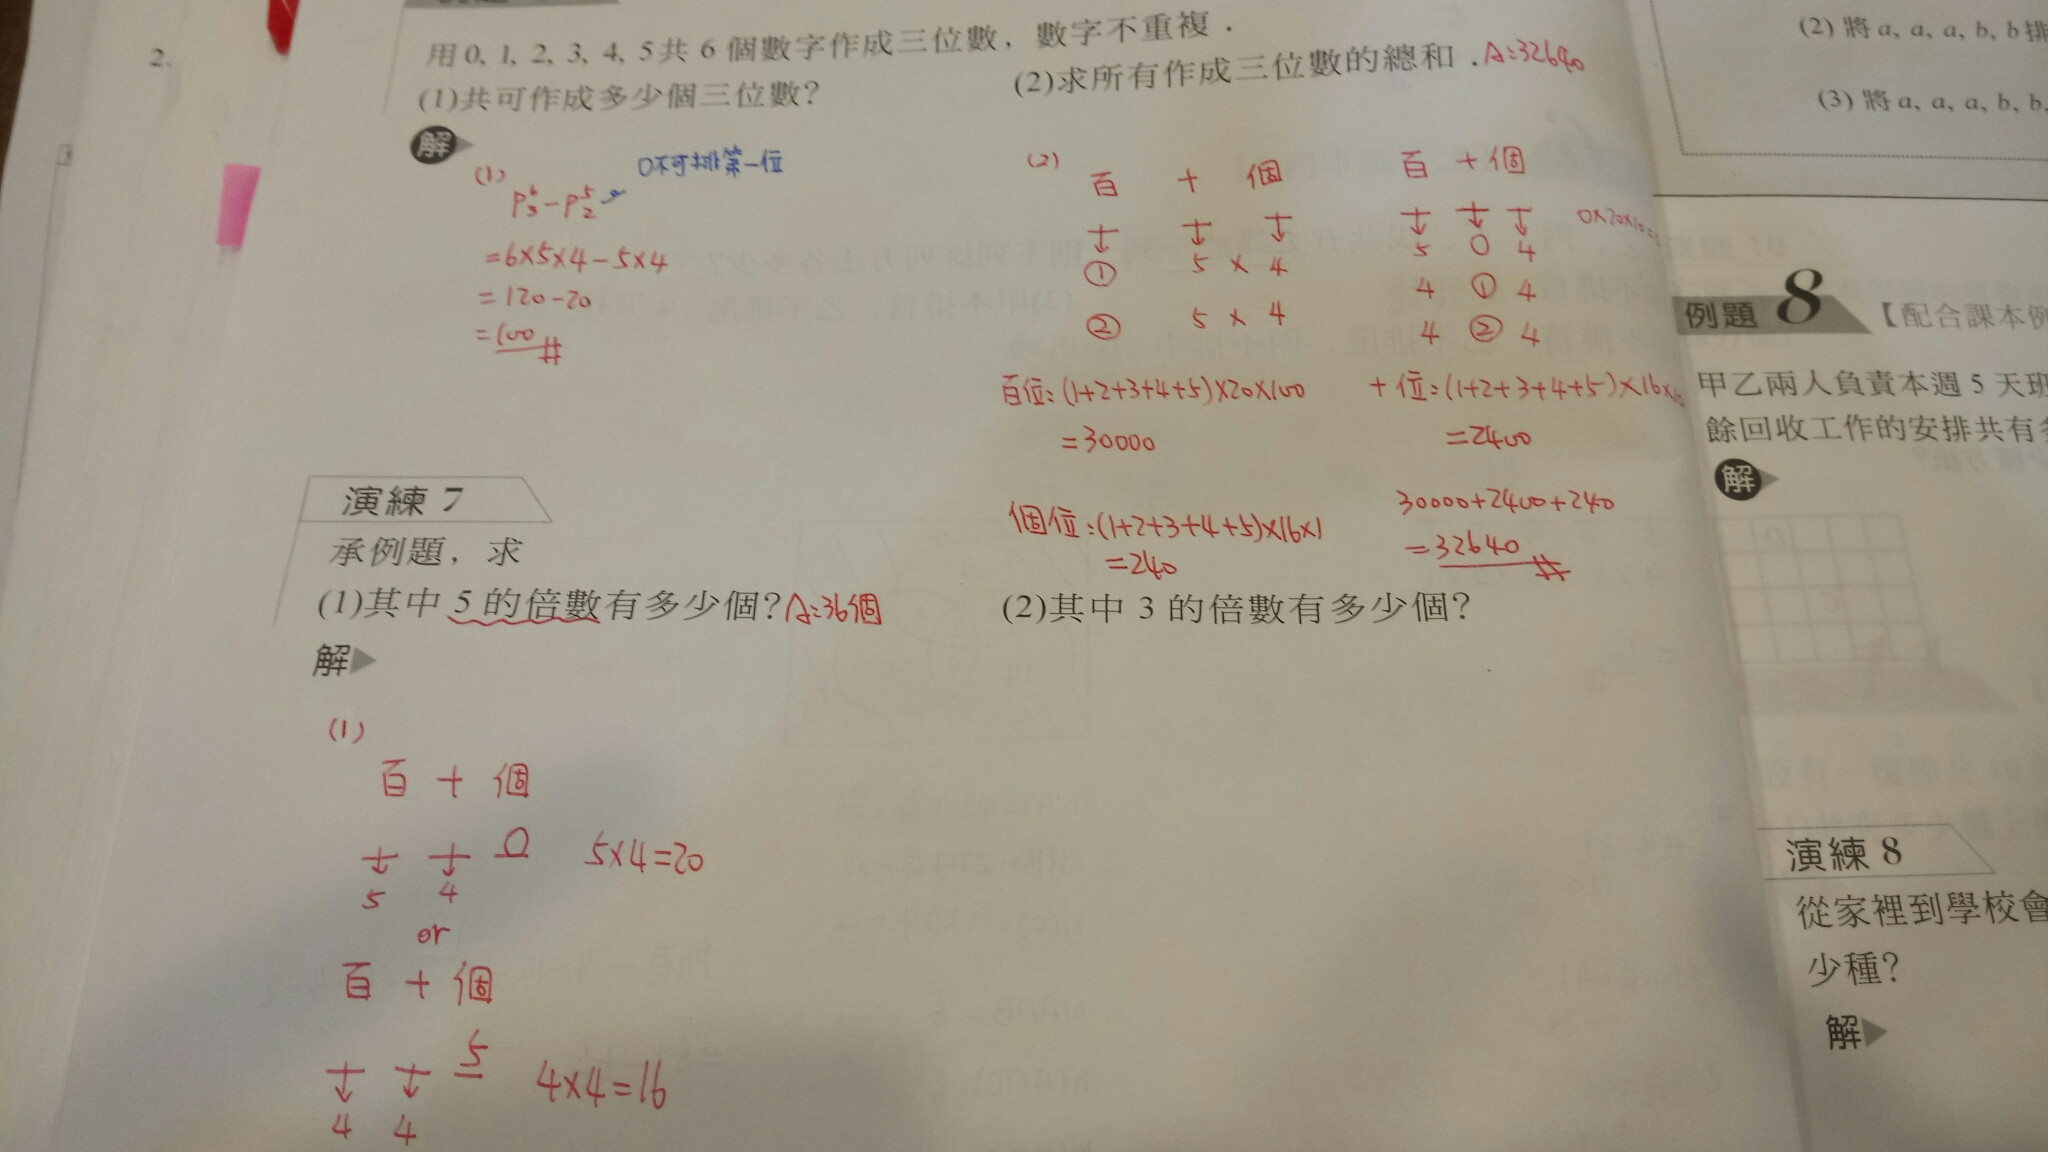 2.
用0, 1, 2, 3, 4, 5共6個數字作成三位數，數字不重複．
(1)共可作成多少個三位數？
(2)求所有作成三位數的總和．A:32640
解
(1)
0不可排第一位
P⁶₃-P⁵₂
=6×5×4-5×4
=120-20
=100#
(2)
百 十 個
① 5 × 4
② 5 × 4
百 十 個
5 0 4
4 ① 4
4 ② 4
百位:(1+2+3+4+5)×20×100
=30000
十位:(1+2+3+4+5)×16×10
=2400
個位:(1+2+3+4+5)×16×1
=240
30000+2400+240
=32640#
演練 7
承例題，求
(1)其中5的倍數有多少個？A:36個
(2)其中3的倍數有多少個？
解
(1)
百 十 個
0 5×4=20
5 4
or
百 十 個
5 4×4=16
4 4
(2) 將a, a, a, b, b排
(3) 將a, a, a, b, b,
例題 8 【配合課本例
甲乙兩人負責本週5天班
餘回收工作的安排共有
解
演練 8
從家裡到學校會
少種？
解